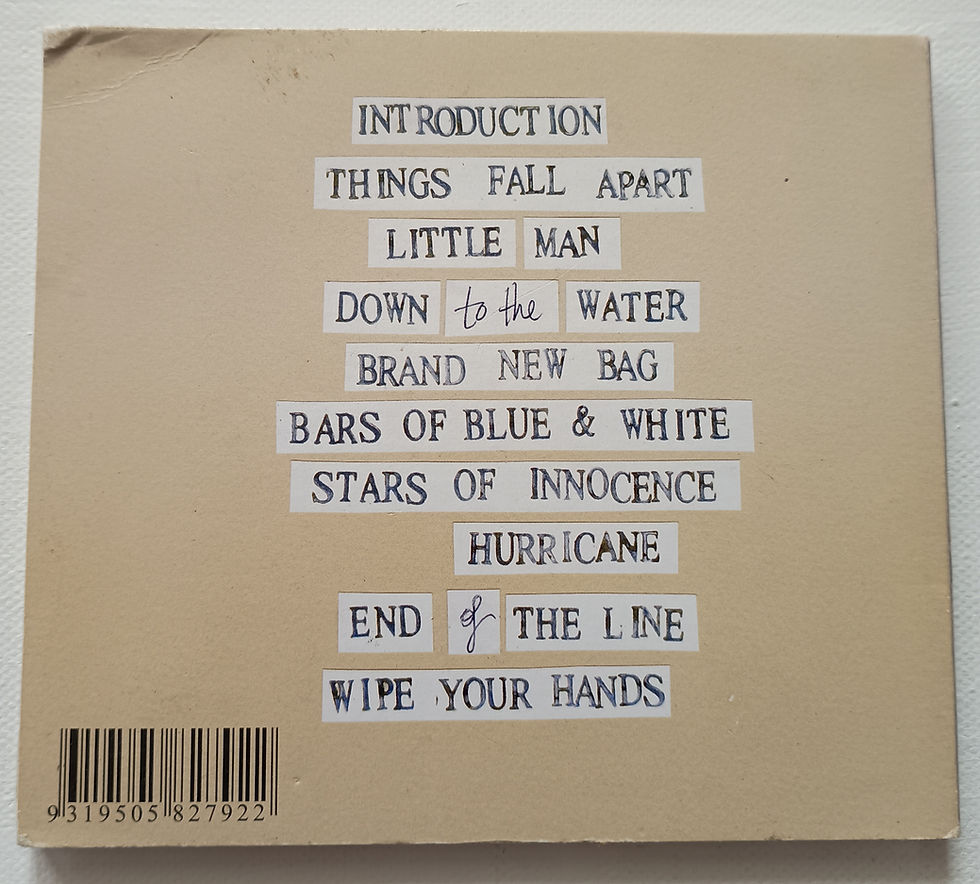 INTRODUCTION
THINGS FALL APART
LITTLE MAN
DOWN to the WATER
BRAND NEW BAG
BARS OF BLUE & WHITE
STARS OF INNOCENCE
HURRICANE
END of THE LINE
WIPE YOUR HANDS
9319505827922